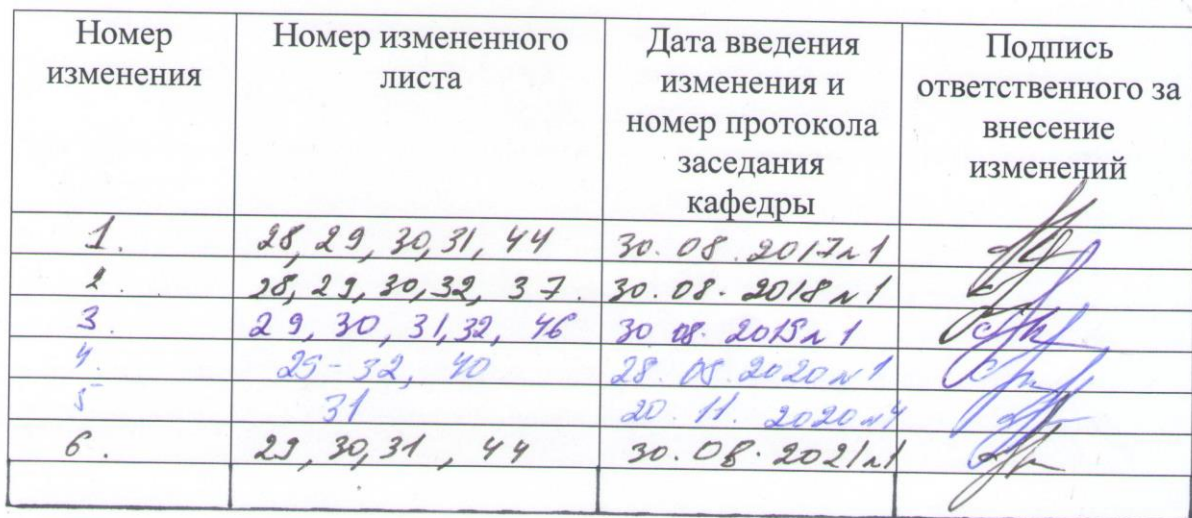 Номер изменения Номер измененного листа Дата введения изменения и номер протокола заседания кафедры Подпись ответственного за внесение изменений
1. 28, 29, 30, 31, 44 30.08.2017 N 1
2. 28, 29, 30, 32, 37. 30.08.2018 N 1
3. 29, 30, 31, 32, 46 30 08. 2019 N 1
4. 29-32, 40 28.08.2020 N 1
5 31 20.11.2020 N 4
6. 29, 30, 31, 44 30.08.2021 N 1